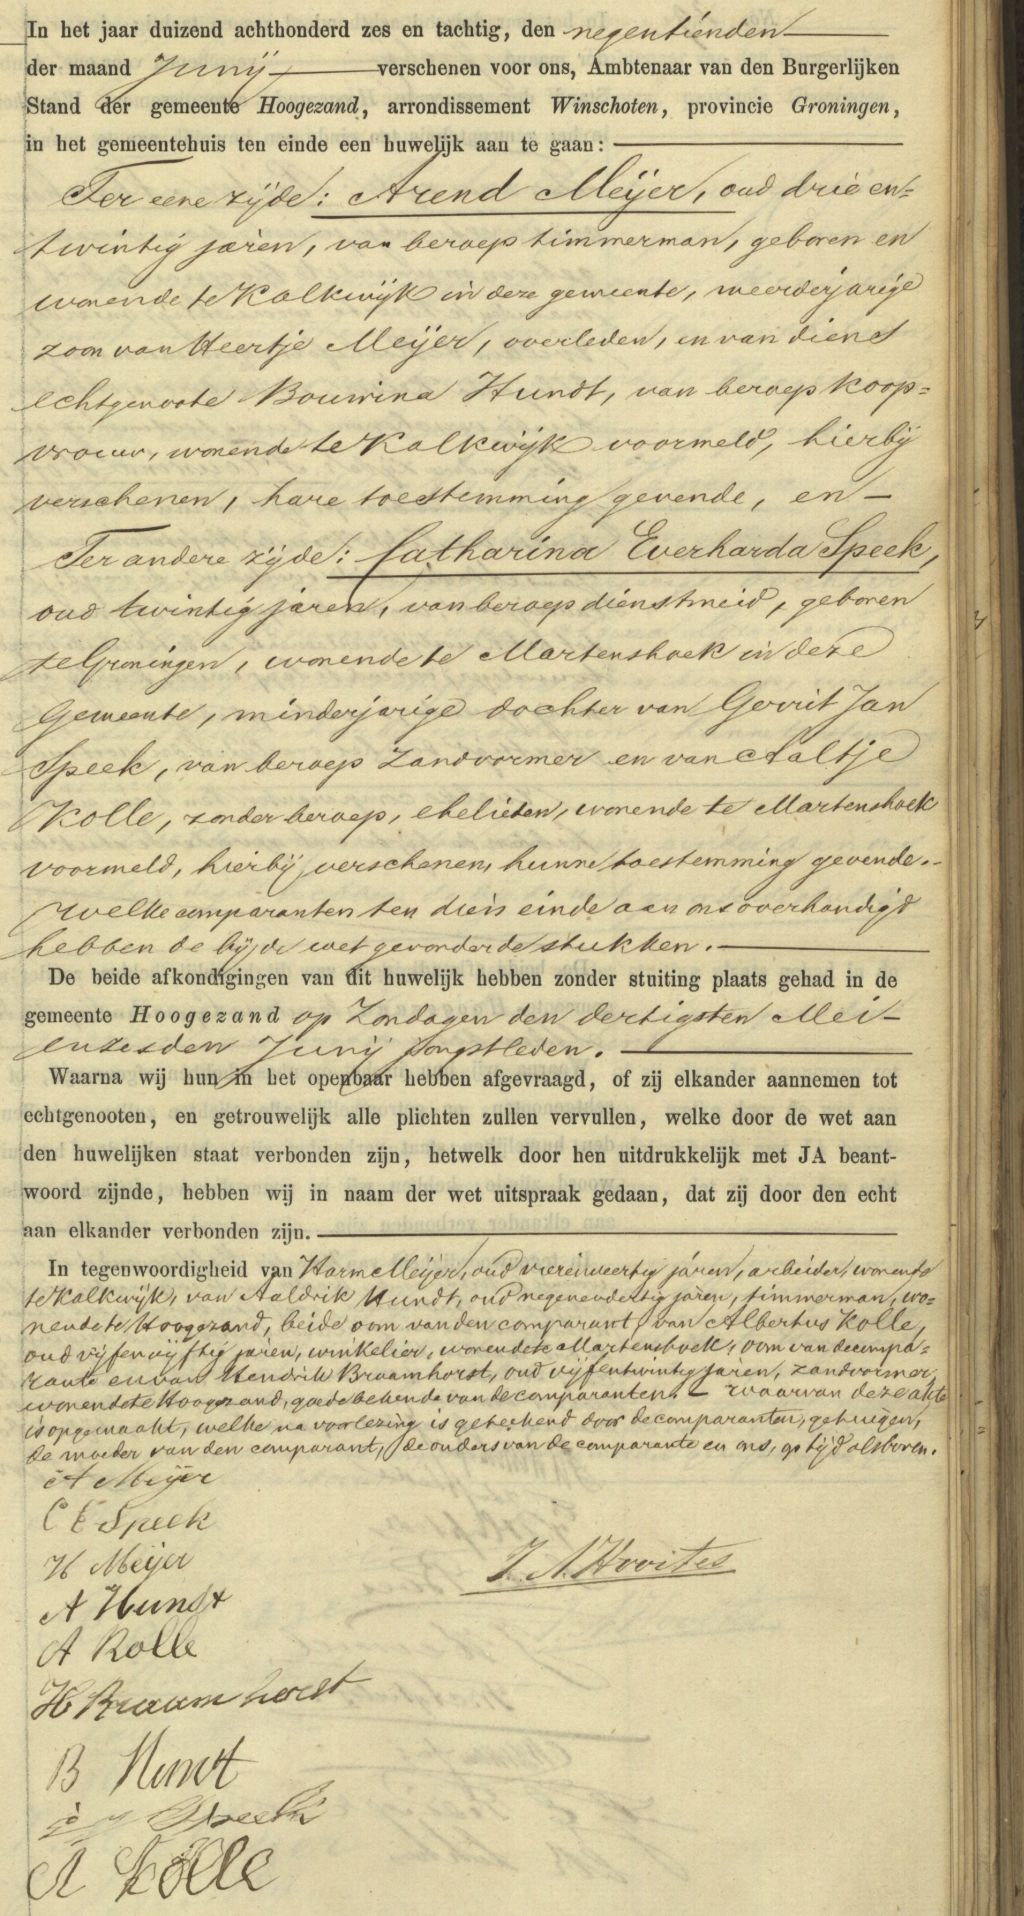 In het jaar duizend achthonderd zes en tachtig, den negentienden
der maand Junij verschenen voor ons, Ambtenaar van den Burgerlijken
Stand der gemeente Hoogezand, arrondissement Winschoten, provincie Groningen,
in het gemeentehuis ten einde een huwelijk aan te gaan:
Ter eene zijde: Arend Meijer, oud drie en-
twintig jaren, van beroep timmerman, geboren en
wonende te Kalkwijk in deze gemeente, meerderjarige
zoon van Heertje Meijer, overleden, en van diens
echtgenoote Bouwina Hundt, van beroep koop=
vrouw, wonende te Kalkwijk voormeld, hierbij
verschenen, hare toestemming gevende, en -
Ter andere zijde: Catharina Everharda Speek,
oud twintig jaren, van beroep dienstmeid, geboren
te Groningen, wonende te Martenshoek in deze
Gemeente, minderjarige dochter van Gerrit Jan
Speek, van beroep Zandvormer en van Aaltje
Kolle, zonder beroep, ehelieden, wonende te Martenshoek
voormeld, hierbij verschenen, hunne toestemming gevende.-
welke comparanten ten dien einde aan ons overhandigd
hebben de bij de wet gevorderde stukken.
De beide afkondigingen van dit huwelijk hebben zonder stuiting plaats gehad in de
gemeente Hoogezand op Zondagen den dertigsten Mei-
en zesden Junij jongstleden.
Waarna wij hun in het openbaar hebben afgevraagd, of zij elkander aannemen tot
echtgenooten, en getrouwelijk alle plichten zullen vervullen, welke door de wet aan
den huwelijken staat verbonden zijn, hetwelk door hen uitdrukkelijk met JA beant-
woord zijnde, hebben wij in naam der wet uitspraak gedaan, dat zij door den echt
aan elkander verbonden zijn.
In tegenwoordigheid van Harm Meijer, oud vierenveertig jaren, arbeider, wonende
te Kalkwijk, van Aaldrik Hundt, oud negenendertig jaren, timmerman, wo=
nende te Hoogezand, beide oom van den comparant, van Albertus Kolle,
oud vijfenvijftig jaren, winkelier, wonende te Martenshoek, oom van de compa=
rante en van Hendrik Braamhorst, oud vijfentwintig jaren, zandvormer,
wonende te Hoogezand, goede bekende van de comparanten. - waarvan deze akte
is opgemaakt, welke na voorlezing is geteekend door de comparanten, getuigen,
de moeder van den comparant, de ouders van de comparante en ons, op tijd alsboven.
A Meijer
C E Speek
H Meijer
J. N. Hooites
A Hundt
A Kolle
H Braamhorst
B Hundt
G J Speek
A Kolle